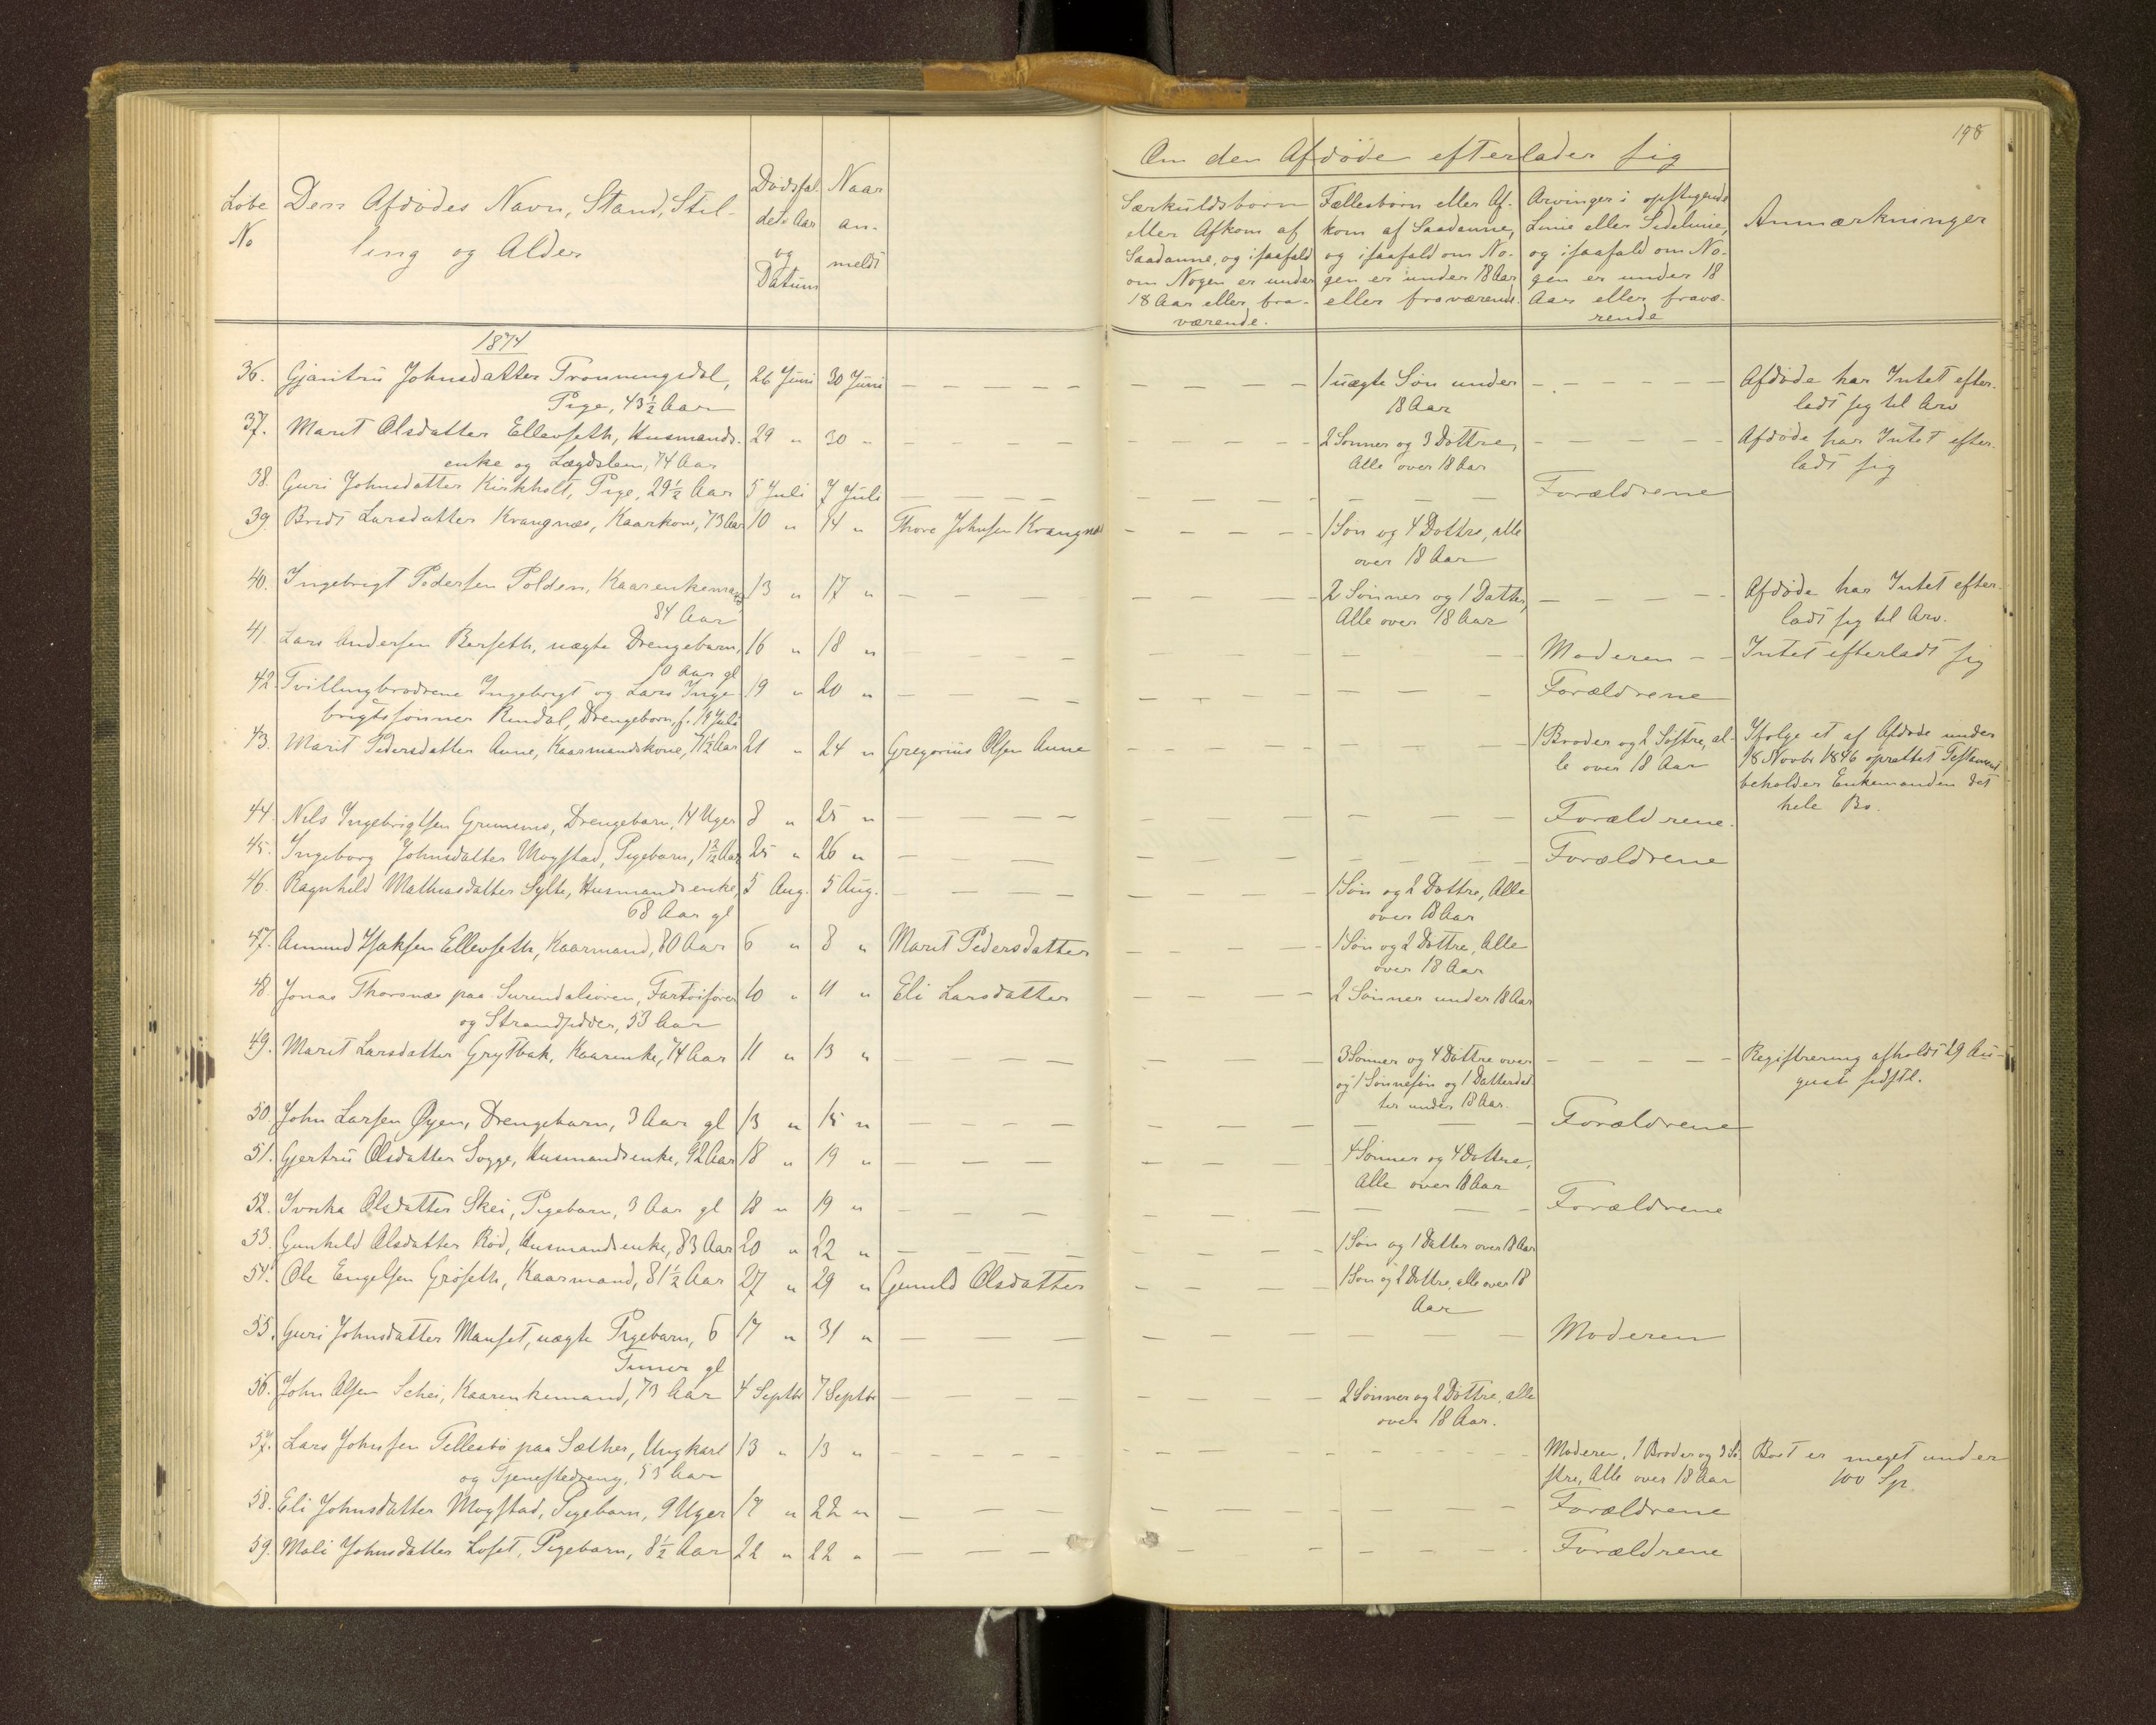 198
Om den Afdøde efterlader sig
Løbe No
Den Afdødes Navn, Stand, Stilling og Alder
Dødsfaldets Aar og Datum
Naar anmeldt
Særkuldsbørn eller Afkom af Saadanne, og ifaafald om Nogen er under 18 Aar eller fraværende.
Fællesbørn eller Afkom af Saadanne, og ifaafald om Nogen er under 18 Aar eller fraværende.
Arvinger i opstigende Linie eller Sidelinie, og ifaafald om Nogen er under 18 Aar eller fraværende
Anmærkninger
1874
36. Gjærtru Johnsdatter Tronningsdal, 26 Juni 30 Juni — 1 uægte Søn under — Afdøde har Intet efter-
Pige, 43½ Aar 18 Aar ladt sig til Arv
37. Marit Olsdatter Ellevseth, Husmands- 29 " 30 " — 2 Sønner og 3 Døttre, — Afdøde har Intet efter-
enke og Lægdslem, 74 Aar Alle over 18 Aar ladt sig
38. Guri Johnsdatter Kirkholt, Pige, 29½ Aar 5 Juli 7 Juli — Forældrene
39. Bredt Larsdatter Kvangnæs, Kaarkone, 73 Aar 10 " 14 " Thore Johnsen Kvangnæs — 1 Søn og 4 Døttre, alle
over 18 Aar
40. Ingebrigt Pedersen Polden, Kaarenkemand, 13 " 17 " — 2 Sønner og 1 Datter, — Afdøde har Intet efter-
84 Aar Alle over 18 Aar ladt sig til Arv.
41. Lars Andersen Berseth, uægte Drengebarn, 16 " 18 " — Moderen — Intet efterladt sig
10 Aar gl
42. Tvillingbrødrene Ingebrigt og Lars Inge- 19 " 20 " — Forældrene
brigtssønner Rindal, Drengebørn, f. 19 Juli
43. Marit Pedersdatter Aune, Kaarmandskone, 71½ Aar 21 " 24 " Gregorius Olsen Aune — 1 Broder og 2 Søstre, al- Ifølge et af Afdøde under
le over 18 Aar 18 Novbr 1846 oprettet Testament
beholder Enkemanden det
hele Bo.
44. Nils Ingebrigtsen Grunnes, Drengebarn, 14 Uger 8 " 25 " — Forældrene.
45. Ingeborg Johnsdatter Mogstad, Pigebarn, 1½ Aar 25 " 26 " — Forældrene
46. Ragnhild Mathiasdatter Sylte, Husmandsenke, 5 Aug. 5 Aug. — 1 Søn og 2 Døttre, Alle
68 Aar gl over 18 Aar
47. Amund Isaksen Ellevseth, Kaarmand, 80 Aar 6 " 8 " Marit Pedersdatter — 1 Søn og 2 Døttre, Alle
over 18 Aar
48. Jonas Thorsnæs paa Surendalsøren, Fartøifører 10 " 11 " Eli Larsdatter — 2 Sønner under 18 Aar
og Strandsidder, 53 Aar
49. Marit Larsdatter Grytbak, Kaarenke, 74 Aar 11 " 13 " — 3 Sønner og 4 Døttre over — Registrering afholdt 29 Au-
og 1 Sønnesøn og 1 Datterdat- gust sidstl.
ter under 18 Aar.
50. John Larsen Øyen, Drengebarn, 3 Aar gl 13 " 15 " — Forældrene
51. Gjertru Olsdatter Sogge, Husmandsenke, 92 Aar 18 " 19 " — 4 Sønner og 4 Døttre,
Alle over 18 Aar
52. Olsdatter Skei, Pigebarn, 3 Aar gl 18 " 19 " — Forældrene
53. Gunhild Olsdatter Rød, Husmandsenke, 83 Aar 20 " 22 " — 1 Søn og 1 Datter over 18 Aar
54. Ole Engelsen Grøseth, Kaarmand, 81½ Aar 27 " 29 " Gunild Olsdatter — 1 Søn og 2 Døttre, alle over 18
Aar
55. Guri Johnsdatter Manset, uægte Pigebarn, 6 17 " 31 " — Moderen
Timer gl
56. John Olsen Schei, Kaarenkemand, 73 Aar 4 Septbr 7 Septbr — 2 Sønner og 2 Døttre, alle
over 18 Aar.
57. Lars Johnsen Tellesbø paa Sæther, Ungkarl 13 " 13 " — Moderen, 1 Broder og 3 Sø- Boet er meget under
og Tjenestedreng, 53 Aar stre, Alle over 18 Aar 100 Sp.
58. Eli Johnsdatter Mogstad, Pigebarn, 9 Uger 17 " 22 " — Forældrene
59. Mali Johnsdatter Løset, Pigebarn, 8½ Aar 22 " 22 " — Forældrene